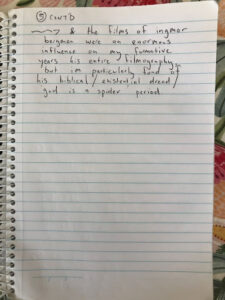 ⑤ CONT'D
& the films of ingmar
bergman were an enormous
influence on my formative
years his entire filmography
but im particularly fond of
his biblical / existential dread /
god is a spider period